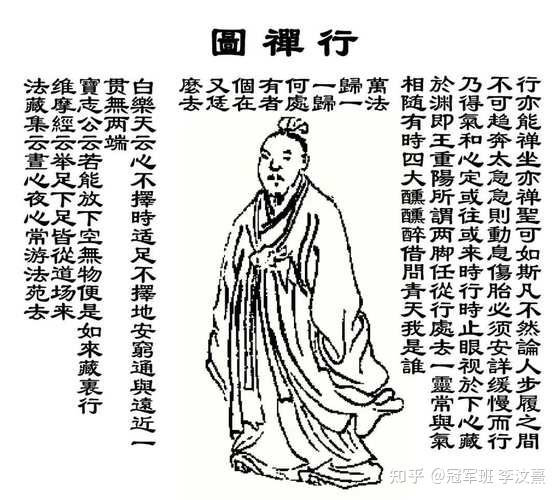 行禪圖
行亦能禅坐亦禅聖可如斯凡不然論人步履之間
不可趨奔太急急則動息傷胎必须安詳缓慢而行
乃得氣和心定或往或来時行時止眼视於下心藏
於渊即王重陽所謂两脚任從行處去一靈常與氣
相随有時四大醺醺醉借問青天我是誰
萬法
歸一
一歸
何處
有者
個在
又恁
麽去
白樂天云心不擇時适足不擇地安窮通與遠近一
贯無两端
寶志公云若能放下空無物便是如來藏裏行
维摩經云举足下足皆從道场来
法藏集云晝心夜心常游法苑去
知乎 @冠军班 李汶熹